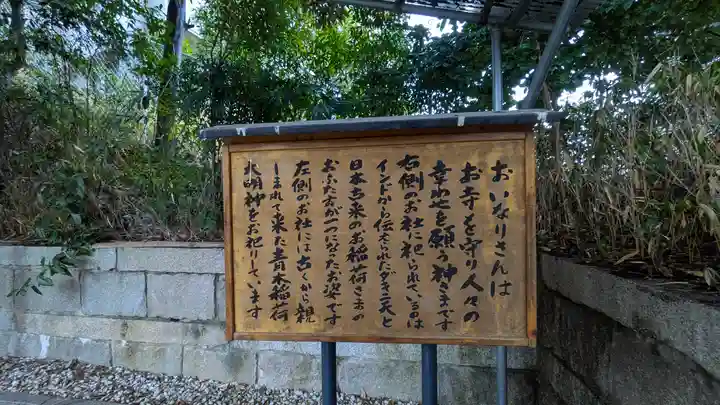 おいなりさんは
お寺を守り人々の
幸せを願う神さまです
右側のお社に祀られているのは
インドから伝えられただき二天と
日本古来のお稲荷さまの
おふた方が一つになったお姿です
左側のお社には古くから親
しまれて来た青木稲荷
大明神をお祀りしています